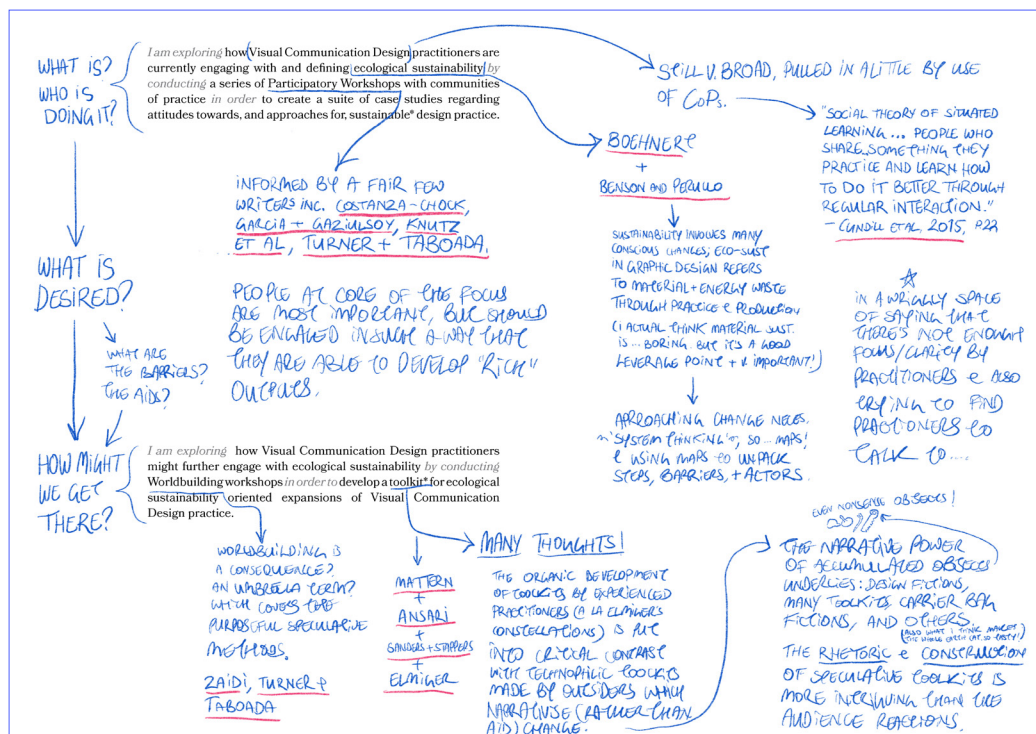 WHAT IS?
WHO IS
DOING IT?
I am exploring how Visual Communication Design practitioners are
currently engaging with and defining ecological sustainability by
conducting a series of Participatory Workshops with communities
of practice in order to create a suite of case studies regarding
attitudes towards, and approaches for, sustainable* design practice.
STILL V. BROAD, PULLED IN A LITTLE BY USE
OF CoPs.
"SOCIAL THEORY OF SITUATED
LEARNING ... PEOPLE WHO
SHARE SOMETHING THEY
PRACTICE AND LEARN HOW
TO DO IT BETTER THROUGH
REGULAR INTERACTION."
- CUNDILL ET AL, 2015, P22
BOEHNERT
+
BENSON AND PERULLO
SUSTAINABILITY INVOLVES MANY
CONSCIOUS CHANGES; ECO-SUST
IN GRAPHIC DESIGN REFERS
TO MATERIAL + ENERGY WASTE
THROUGH PRACTICE & PRODUCTION
(I ACTUAL THINK MATERIAL SUST.
IS ... BORING. BUT IT'S A GOOD
LEVERAGE POINT + V. IMPORTANT!)
APPROACHING CHANGE NECES.
'SYSTEM THINKING', SO ... MAPS!
& USING MAPS TO UNPACK
STEPS, BARRIERS, + ACTORS.
INFORMED BY A FAIR FEW
WRITERS INC. COSTANZA-CHOCK,
GARCIA + GAZIULSOY, KNUTZ
ET AL, TURNER + TABOADA.
PEOPLE AT CORE OF THE FOCUS
ARE MOST IMPORTANT, BUT SHOULD
BE ENGAGED IN SUCH A WAY THAT
THEY ARE ABLE TO DEVELOP "RICH"
OUTPUTS.
IN A WRIGGLY SPACE
OF SAYING THAT
THERE'S NOT ENOUGH
FOCUS/CLARITY BY
PRACTITIONERS & ALSO
TRYING TO FIND
PRACTIONERS TO
TALK TO ....
WHAT IS
DESIRED?
WHAT ARE
THE BARRIERS?
THE AIDS?
HOW MIGHT
WE GET
THERE?
I am exploring how Visual Communication Design practitioners
might further engage with ecological sustainability by conducting
Worldbuilding workshops in order to develop a toolkit* for ecological
sustainability oriented expansions of Visual Communication
Design practice.
WORLDBUILDING IS
A CONSEQUENCE?
AN UMBRELLA TERM?
WHICH COVERS THE
PURPOSEFUL SPECULATIVE
METHODS.
ZAIDI, TURNER +
TABOADA
MATTERN
+
ANSARI
+
SANDERS + STAPPERS
+
ELMIGER
MANY THOUGHTS!
THE ORGANIC DEVELOPMENT
OF TOOLKITS BY EXPERIENCED
PRACTITIONERS (A LA ELMIGER'S
CONSTELLATIONS) IS PUT
INTO CRITICAL CONTRAST
WITH TECHNOPHILIC TOOLKITS
MADE BY OUTSIDERS WHICH
NARRATIVISE (RATHER THAN
AID) CHANGE.
EVEN NONSENSE OBJECTS!
THE NARRATIVE POWER
OF ACCUMULATED OBJECTS
UNDERLIES: DESIGN FICTIONS,
MANY TOOLKITS, CARRIER BAG
FICTIONS, AND OTHERS.
(ALSO WHAT I THINK MAKES
THE WHOLE EARTH CAT. SO TASTY!)
THE RHETORIC & CONSTRUCTION
OF SPECULATIVE TOOLKITS IS
MORE INTRIGUING THAN THE
AUDIENCE REACTIONS.